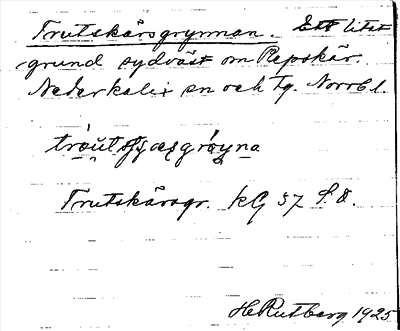 Trutskärsgrynnan. Ett litet
grund sydväst om Repskär.
Nederkalix sn och tg. Norrb. l.
Trutskärsgr. kG 37 S.O.
H Rutberg 1925